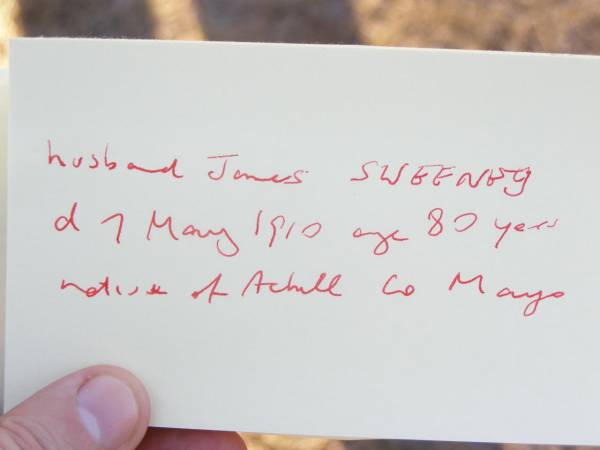 husband James SWEENEY
d 7 May 1910 age 80 years
native of Achill Co Mayo